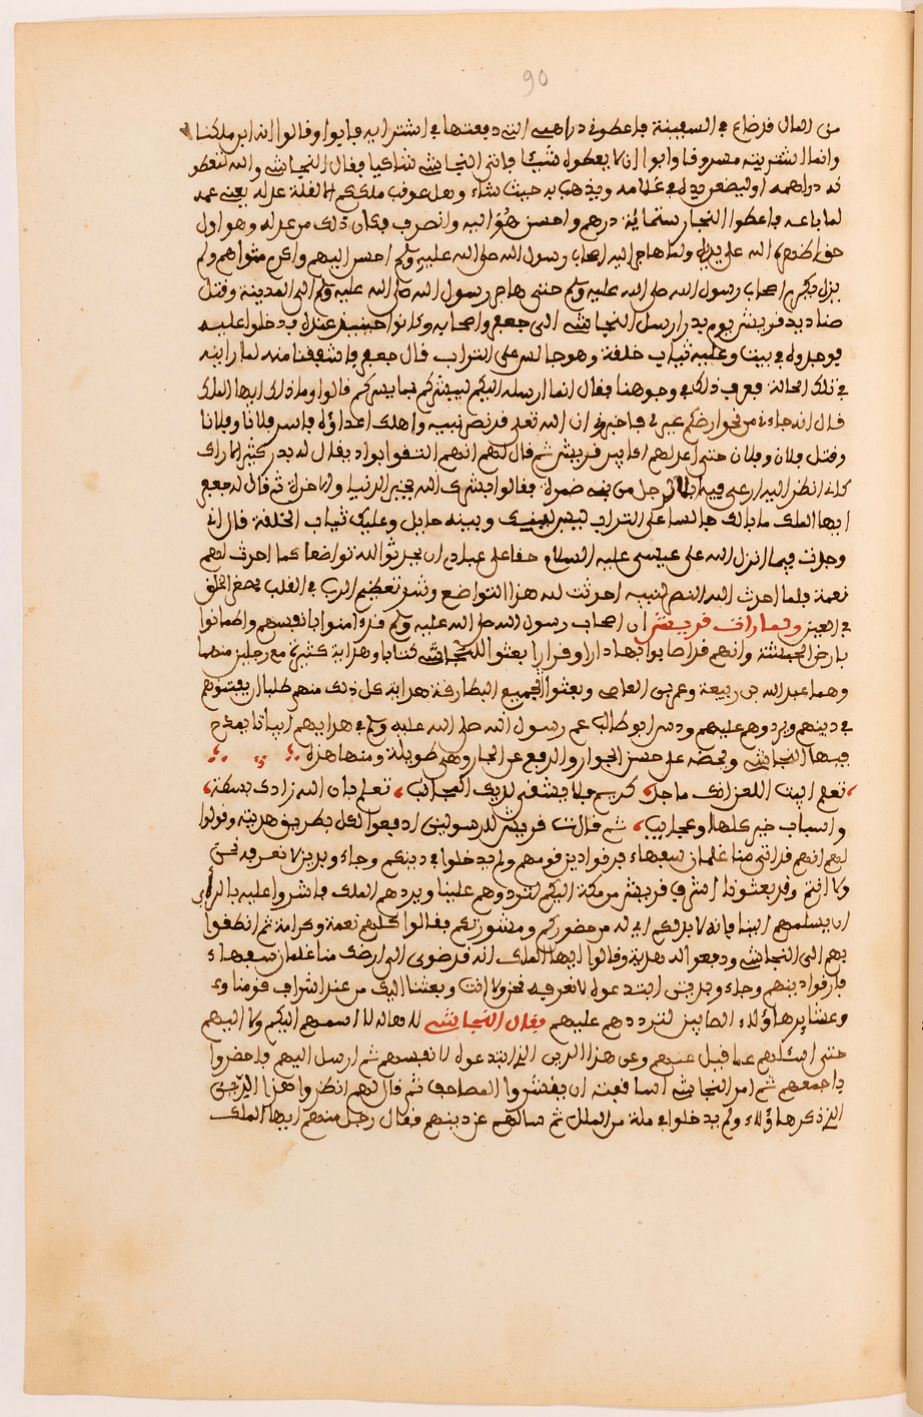 90
من المال فرضاع في السفينة فاعطوني دراهمي التي دفعتها في اشترايه فابوا وقالوا انه ابن ملكنا
وانما اشتريته مسروقا وابوا ان لا يعطوه شيئا فاتى النجاشي شاكيا فقال النجاشي والله لتعطو
نه دراهمه او ليضعن يده في غلامه ويذهب به حيث شاء وهل عوقب ملككم الا لقلة عدله يعني عمه
لما باعه فاعطوا التجار ستمائة درهم واحسن هو اليه وانصرف فكان ذلك من عدله وهو اول
الله على يديه ولما هاجر اليه اصحاب رسول الله صلى الله عليه وسلم احسن اليهم واكرم مثواهم ولم
يزل يكرم اصحاب رسول الله صلى الله عليه وسلم حتى هاجر رسول الله صلى الله عليه وسلم الى المدينة وقتل
صناديد قريش يوم بدر ارسل النجاشي الى جعفر واصحابه وكانوا حينئذ عنده فدخلوا عليه
فوجدوه في بيت وعليه ثياب خلقة وهو جالس على التراب قال جعفر فاشفقنا منه لما رايناه
في تلك الحالة فعرف ذلك في وجوهنا فقال انما ارسلت اليكم لنبشركم بما يسركم قالوا وما ذلك ايها الملك
قال انه جاءني من نحو ارضكم عير لي فاخبرني ان الله تعلى قد نصر نبيه واهلك اعداؤه واسر فلانا وفلانا
وقتل فلان وفلان حتى اعد لهم اكابر قريش ثم قال لهم انهم التقوا بواد يقال له بدر كثير الاراك
كاني انظر اليه ارعى فيه ابلا لرجل من بني ضمرة فقالوا بشرك الله بخير الدنيا والاخرة ثم قال له جعفر
ايها الملك ما بالك جالسا على التراب ليس بينك وبينه حايل وعليك ثياب الخلقة قال اني
وجدت فيما انزل الله على عيسى عليه السلام حقا على عباده ان يحدثوا لله تواضعا كما احدث لهم
نعمة فلما احدث الله النصر لنبيه احدثت لله هذا التواضع وشد تعظيم الرب في القلب يحقر الخلق
في العين ولما رات قريش ان اصحاب رسول الله صلى الله عليه وسلم قد امنوا بانفسهم واطمانوا
بارض الحبشة وانهم قد اصابوا بها دارا وقرارا بعثوا للنجاشي كتابا وهداية كثيرة مع رجلين منهما
وهما عبد الله بن ربيعة وعمرو بن العاصي وبعثوا لجميع البطارقة هداية كل ذلك منهم طلبا ان يفتنوهم
في دينهم ويردوهم عليهم ودس ابو طالب عم رسول الله صلى الله عليه وسلم في هدايهم ابياتا يمدح
فيها النجاشي ويحضه على حسن الجوار والدفع عن الجار وهي طويلة ومنها هذه
تعلم ابيت اللعن انك ماجد كريم فلا يشقى لديك المجانب تعلم بان الله زادك بسطة
واسباب خير كلها وعجايب ثم قالت قريش للرسولين ادفعوا لكل بطريق هديته وقولوا
لهم انهم قد اتى منا غلمان سفهاء فرقوا دين قومهم ولم يدخلوا في دينكم وجاءو بدين لا نعرفه نحن
ولا انتم وقد بعثونا اشرف قريش من مكة اليكم لتردوهم علينا ويردهم الملك فاشروا عليه بالراي
ان يسلمهم الينا فانه لابد لكم ان له من حضوركم ومشورتكم فقالوا كلهم نعمة وكرامة ثم انطلقوا
بهم الى النجاشي ودفعوا له هدية وقالوا ايها الملك انه قد ضوى الى ارضك منا غلمان سفهاء
فارقوا دينهم وجاءو بدين ابتدعوه لا نعرفه نحن ولا انت وبعثنا اليك من عند اشراف قومنا وء
وعشايرها ؤلاء الصابيين لتردهم عليهم فقال النجاشي لا والله لا اسلمهم اليكم ولا اليهم
حتى اسئلهم عما قيل عنهم وعن هذا الدين الذي ابتدعوه لانفسهم ثم ارسل اليهم فاحضروا
باجمعهم ثم امر النجاشي اساقفته ان ينشروا المصاحف ثم قال لهم انظروا هذا الدين
الذي ذكر هاؤلاء ولم يدخلوا في ملة من الملل ثم سالهم عن دينهم فقال رجل منهم ايها الملك